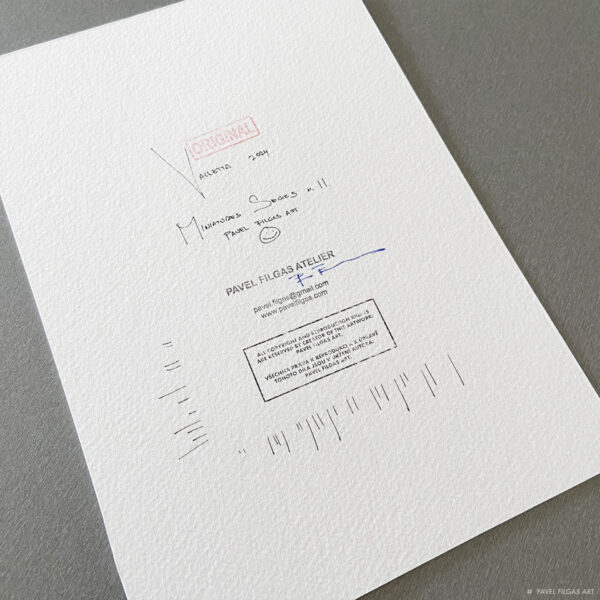 ORIGINAL
VALLETTA 2024
MINIATURES SERIES n. 11
PAVEL FILGAS ART
PAVEL FILGAS ATELIER
pavel.filgas@gmail.com
www.pavelfilgas.com
ALL COPYRIGHT AND REPRODUCTION RIGHTS
ARE RESERVED BY CREATOR OF THIS ARTWORK:
PAVEL FILGAS ART.
VŠECHNA PRÁVA K REPRODUKCI
TOHOTO DÍLA JSOU V DRŽENÍ AUTORA:
PAVEL FILGAS ART.
# PAVEL FILGAS ART